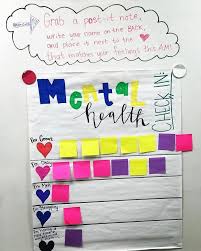 Grab a post-it note,
write your name on the BACK,
and place it next to the
that matches your feelings this AM!
Mental
health
CHECK IN:
I'm Great
I'm Okay
I'm Meh
I'm Struggling